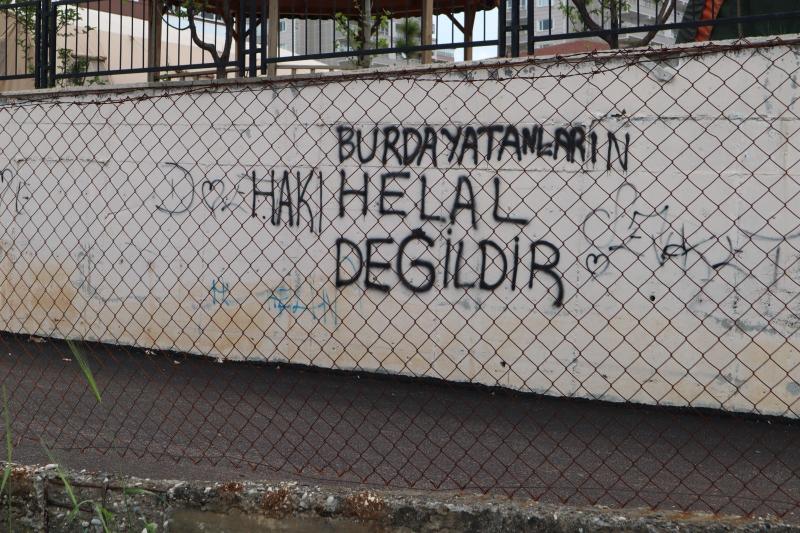 BURDA YATANLARIN
HAKI HELAL
DEĞİLDİR